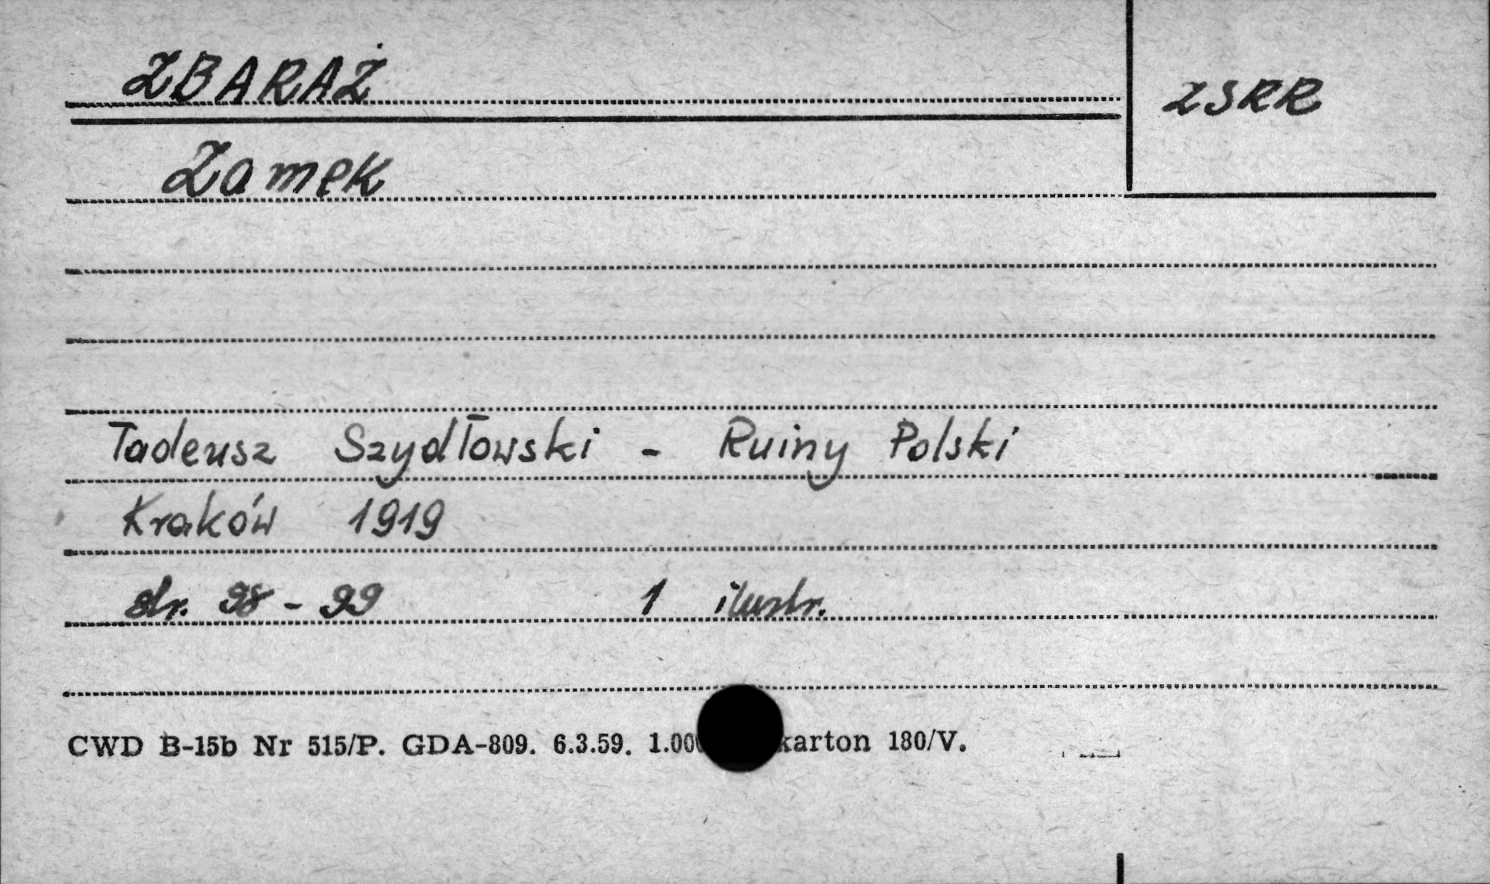 ZBARAŻ
ZSRR
Zamek
Tadeusz Szydłowski - Ruiny Polski
Kraków 1919
str. 98 - 99 1 ilustr.
CWD B-15b Nr 515/P. GDA-809. 6.3.59. karton 180/V.